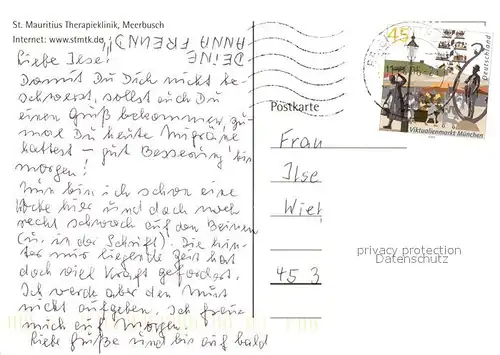 St. Mauritius Therapieklinik, Meerbusch
Internet: www.stmtk.de
DEINE
ANNA FREUND
Liebe Ilse!
Damit Du Dich nicht be-
schwerst, sollst auch Du
einen Gruß bekommen, zu-
mal Du heute Migräne
hattest – gut Besserung bis
morgen!
Nun bin ich schon eine
Woche hier und doch noch
recht schwach auf den Beinen
(u. in der Schrift). Die hin-
ter mir liegende Zeit hat
doch viel Kraft gefordert.
Ich werde aber den Mut
nicht aufgeben. Ich freue
mich auf Morgen.
Liebe Grüße und bis auf bald
Postkarte
45
Deutschland
Viktualienmarkt München
Frau
Ilse
Wie
45 3
privacy protection
Datenschutz